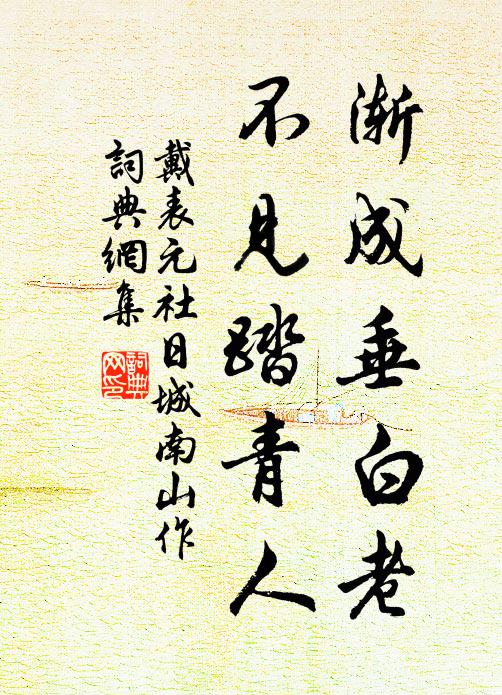 漸成垂白老
不見踏青人
戴表元社日城南山作
詞典網集
詞典
网印